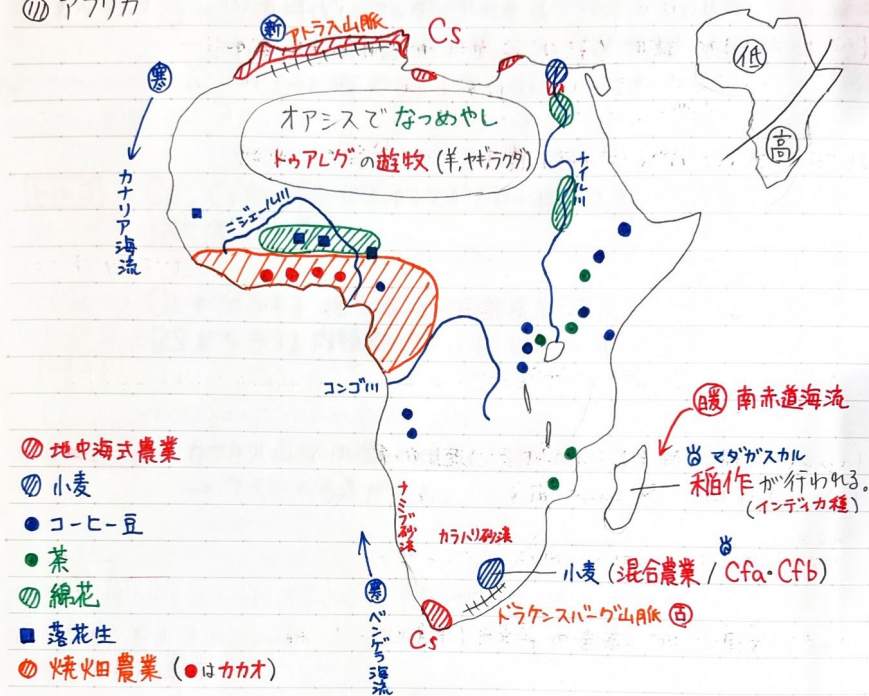 ⑪ アフリカ
新
アトラス山脈
Cs
寒
カナリア海流
オアシスで なつめやし
トゥアレグの遊牧 (羊,ヤギ,ラクダ)
低
高
ナイル川
ニジェール川
コンゴ川
暖 南赤道海流
マダガスカル
稲作が行われる。
(インディカ種)
ナミブ砂漠
カラハリ砂漠
小麦 (混合農業 / Cfa・Cfb)
ドラケンスバーグ山脈 古
Cs
寒
ベンゲラ海流
地中海式農業
小麦
コーヒー豆
茶
綿花
落花生
焼畑農業 (●はカカオ)